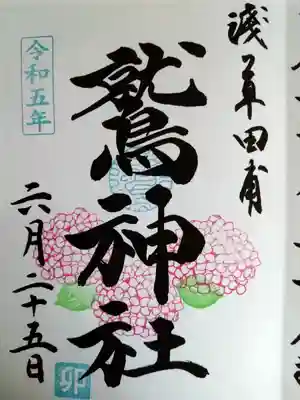 淺草田甫
鷲神社
令和五年
六月二十五日
卯